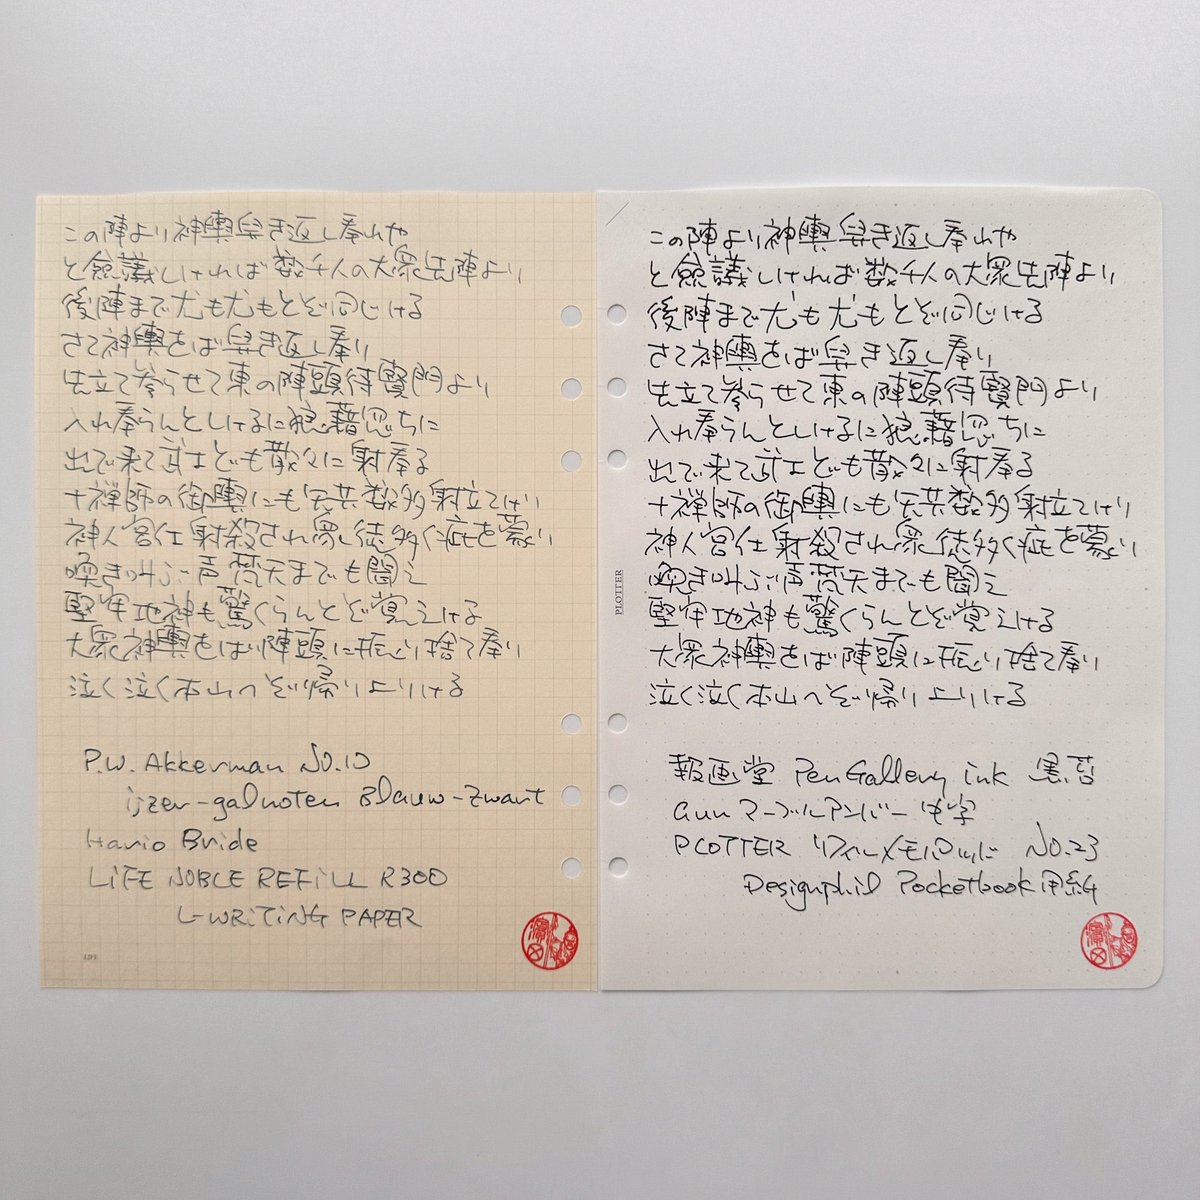 この陣より神輿舁き返し奉れや
と僉議しければ数千人の大衆先陣より
後陣まで尤も尤もとぞ同じける
さて神輿をば舁き返し奉り
先立て参らせて東の陣頭待賢門より
入れ奉らんとしけるに狼藉忽ちに
出で来て武士ども散々に射奉る
十禅師の御輿にも矢共数多射立てけり
神人宮仕射殺され衆徒多く疵を蒙り
喚き叫ぶ声梵天までも聞え
堅牢地神も驚くらんとぞ覚えける
大衆神輿をば陣頭に振り捨て奉り
泣く泣く本山へぞ帰り上りける
P.W. Akkerman No.10
ijzer-galnoten Blauw-Zwart
Hario Bride
LiFE NOBLE REFiLL R300
L-WRiTiNG PAPER
LIFE
この陣より神輿舁き返し奉れや
と僉議しければ数千人の大衆先陣より
後陣まで尤も尤もとぞ同じける
さて神輿をば舁き返し奉り
先立て参らせて東の陣頭待賢門より
入れ奉らんとしけるに狼藉忽ちに
出で来て武士ども散々に射奉る
十禅師の御輿にも矢共数多射立てけり
神人宮仕射殺され衆徒多く疵を蒙り
喚き叫ぶ声梵天までも聞え
堅牢地神も驚くらんとぞ覚えける
大衆神輿をば陣頭に振り捨て奉り
泣く泣く本山へぞ帰り上りける
PLOTTER
報画堂 Pen Gallery ink 黒苔
aun マーブルアンバー 中字
PLOTTER リフィルメモパッド No.23
Designphil Pocketbook用紙